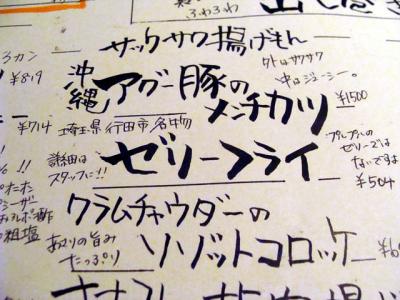 サックサク揚げもん
外はサクサク
中はジューシー。
沖縄 アグー豚の
メンチカツ ¥1500
¥819
¥714
埼玉県行田市名物
ゼリーフライ
プルプルの
ゼリーズでは
ないですよ
¥504
詳細は
スタッフに!!
クラムチャウダーの
リゾットコロッケ
あさりの旨み
たっぷり
粗塩